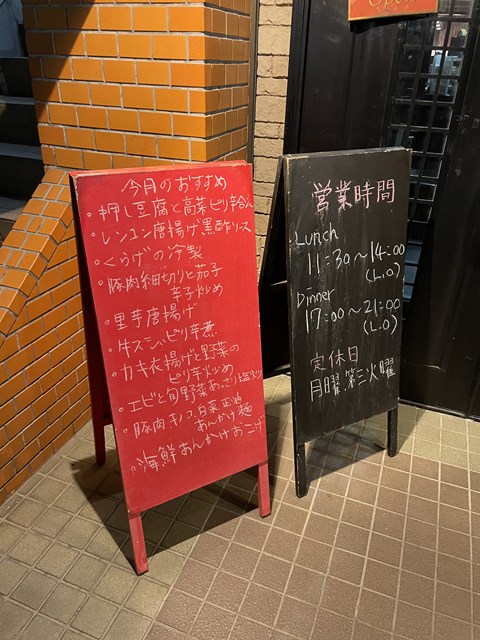 今月のおすすめ
・押し豆腐と高菜ピリ辛合え
・レンコン唐揚げ黒酢ソース
・くらげの冷製
・豚肉細切りと茄子
辛子炒め
・里芋唐揚げ
・牛スジピリ辛煮
・カキ衣揚げと野菜の
ピリ辛炒め
・エビと旬野菜あっさり塩
・豚肉キノコ、白菜
あんかけ麺
・海鮮あんかけおこげ
営業時間
Lunch
11:30~14:00
(L.O)
Dinner
17:00~21:00
(L.O)
定休日
月曜 第三火曜